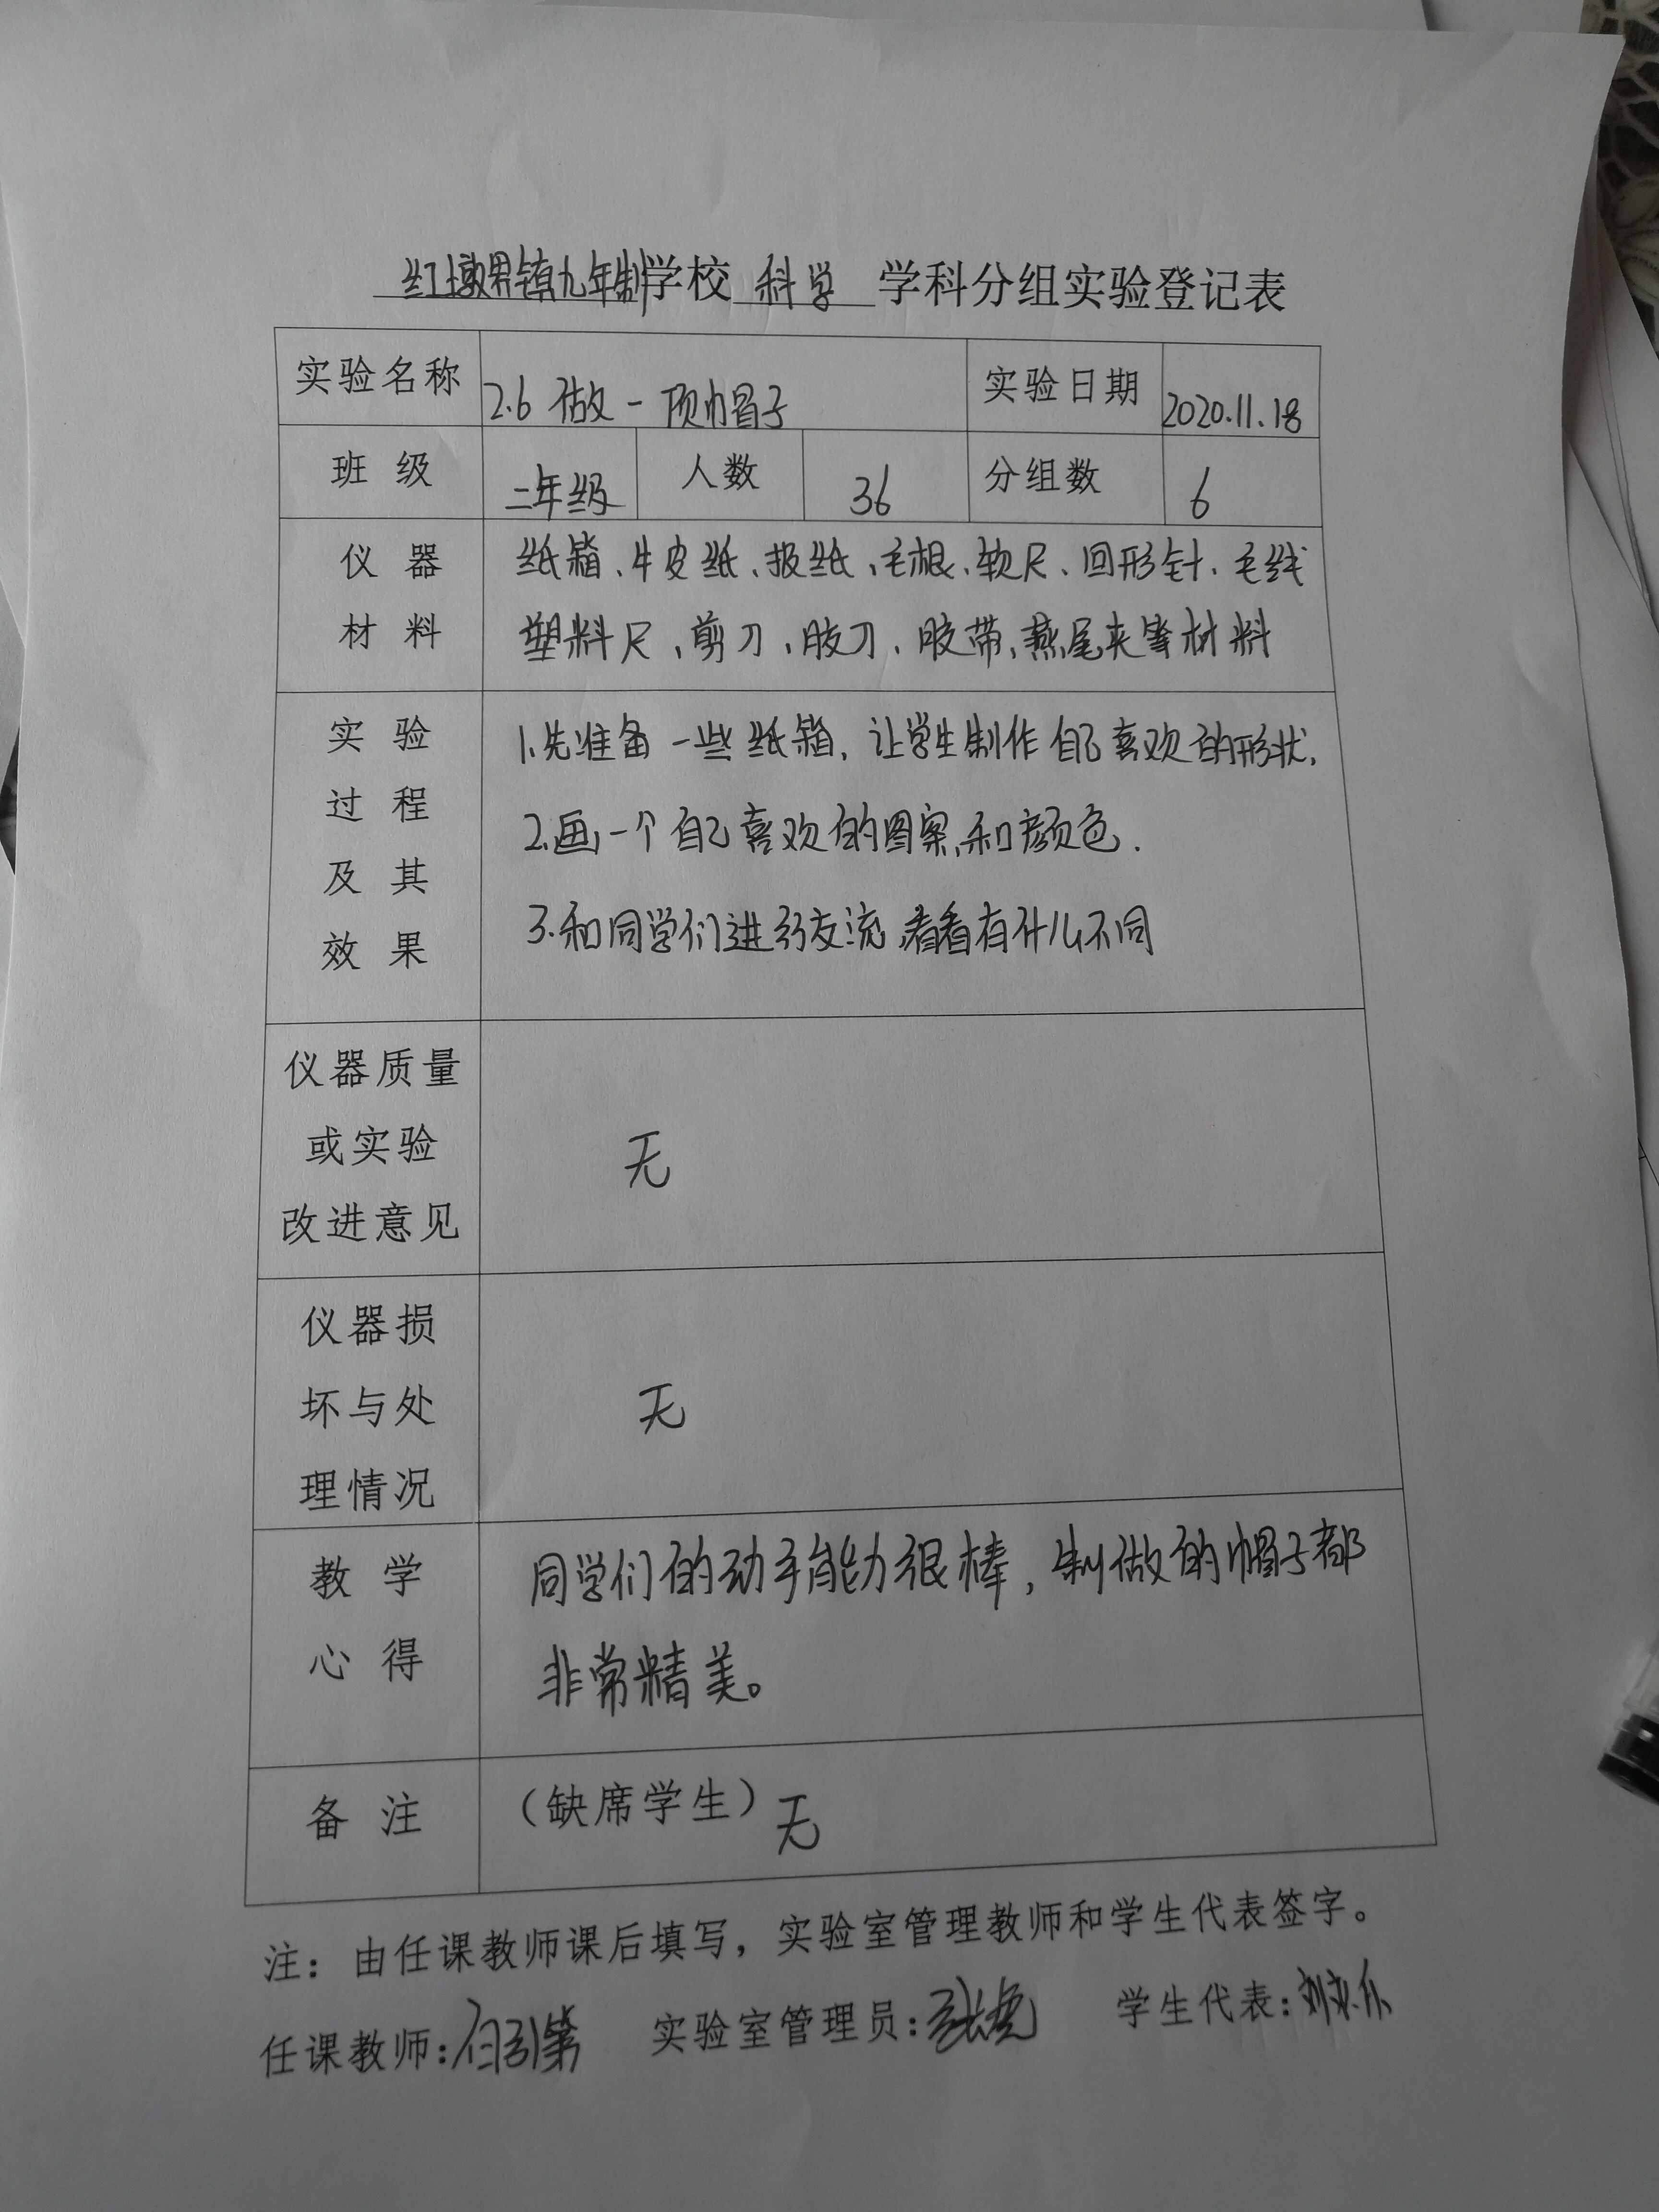 红墩界镇九年制学校 科学 学科分组实验登记表
实验名称 2.6 做一顶帽子 实验日期 2020.11.18
班级 二年级 人数 36 分组数 6
仪器材料 纸箱、牛皮纸、报纸、毛根、软尺、回形针、毛线
塑料尺、剪刀、胶刀、胶带、燕尾夹等材料
实验过程及其效果
1.先准备一些纸箱，让学生制作自己喜欢的形状，
2.画一个自己喜欢的图案，和颜色.
3.和同学们进行交流，看看有什么不同
仪器质量
或实验
改进意见
无
仪器损
坏与处
理情况
无
教学
心得
同学们的动手能力很棒，制做的帽子都
非常精美。
备注 （缺席学生）无
注：由任课教师课后填写，实验室管理教师和学生代表签字。
任课教师: 实验室管理员: 学生代表: